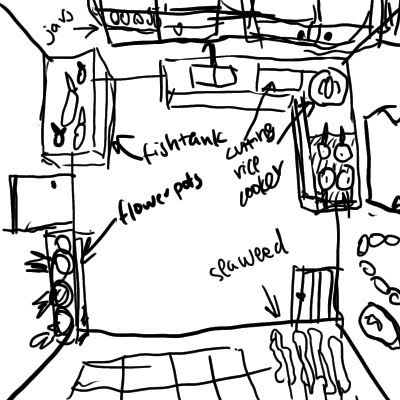 jars
fishtank
cutting
rice
cooker
flowerpots
seaweed